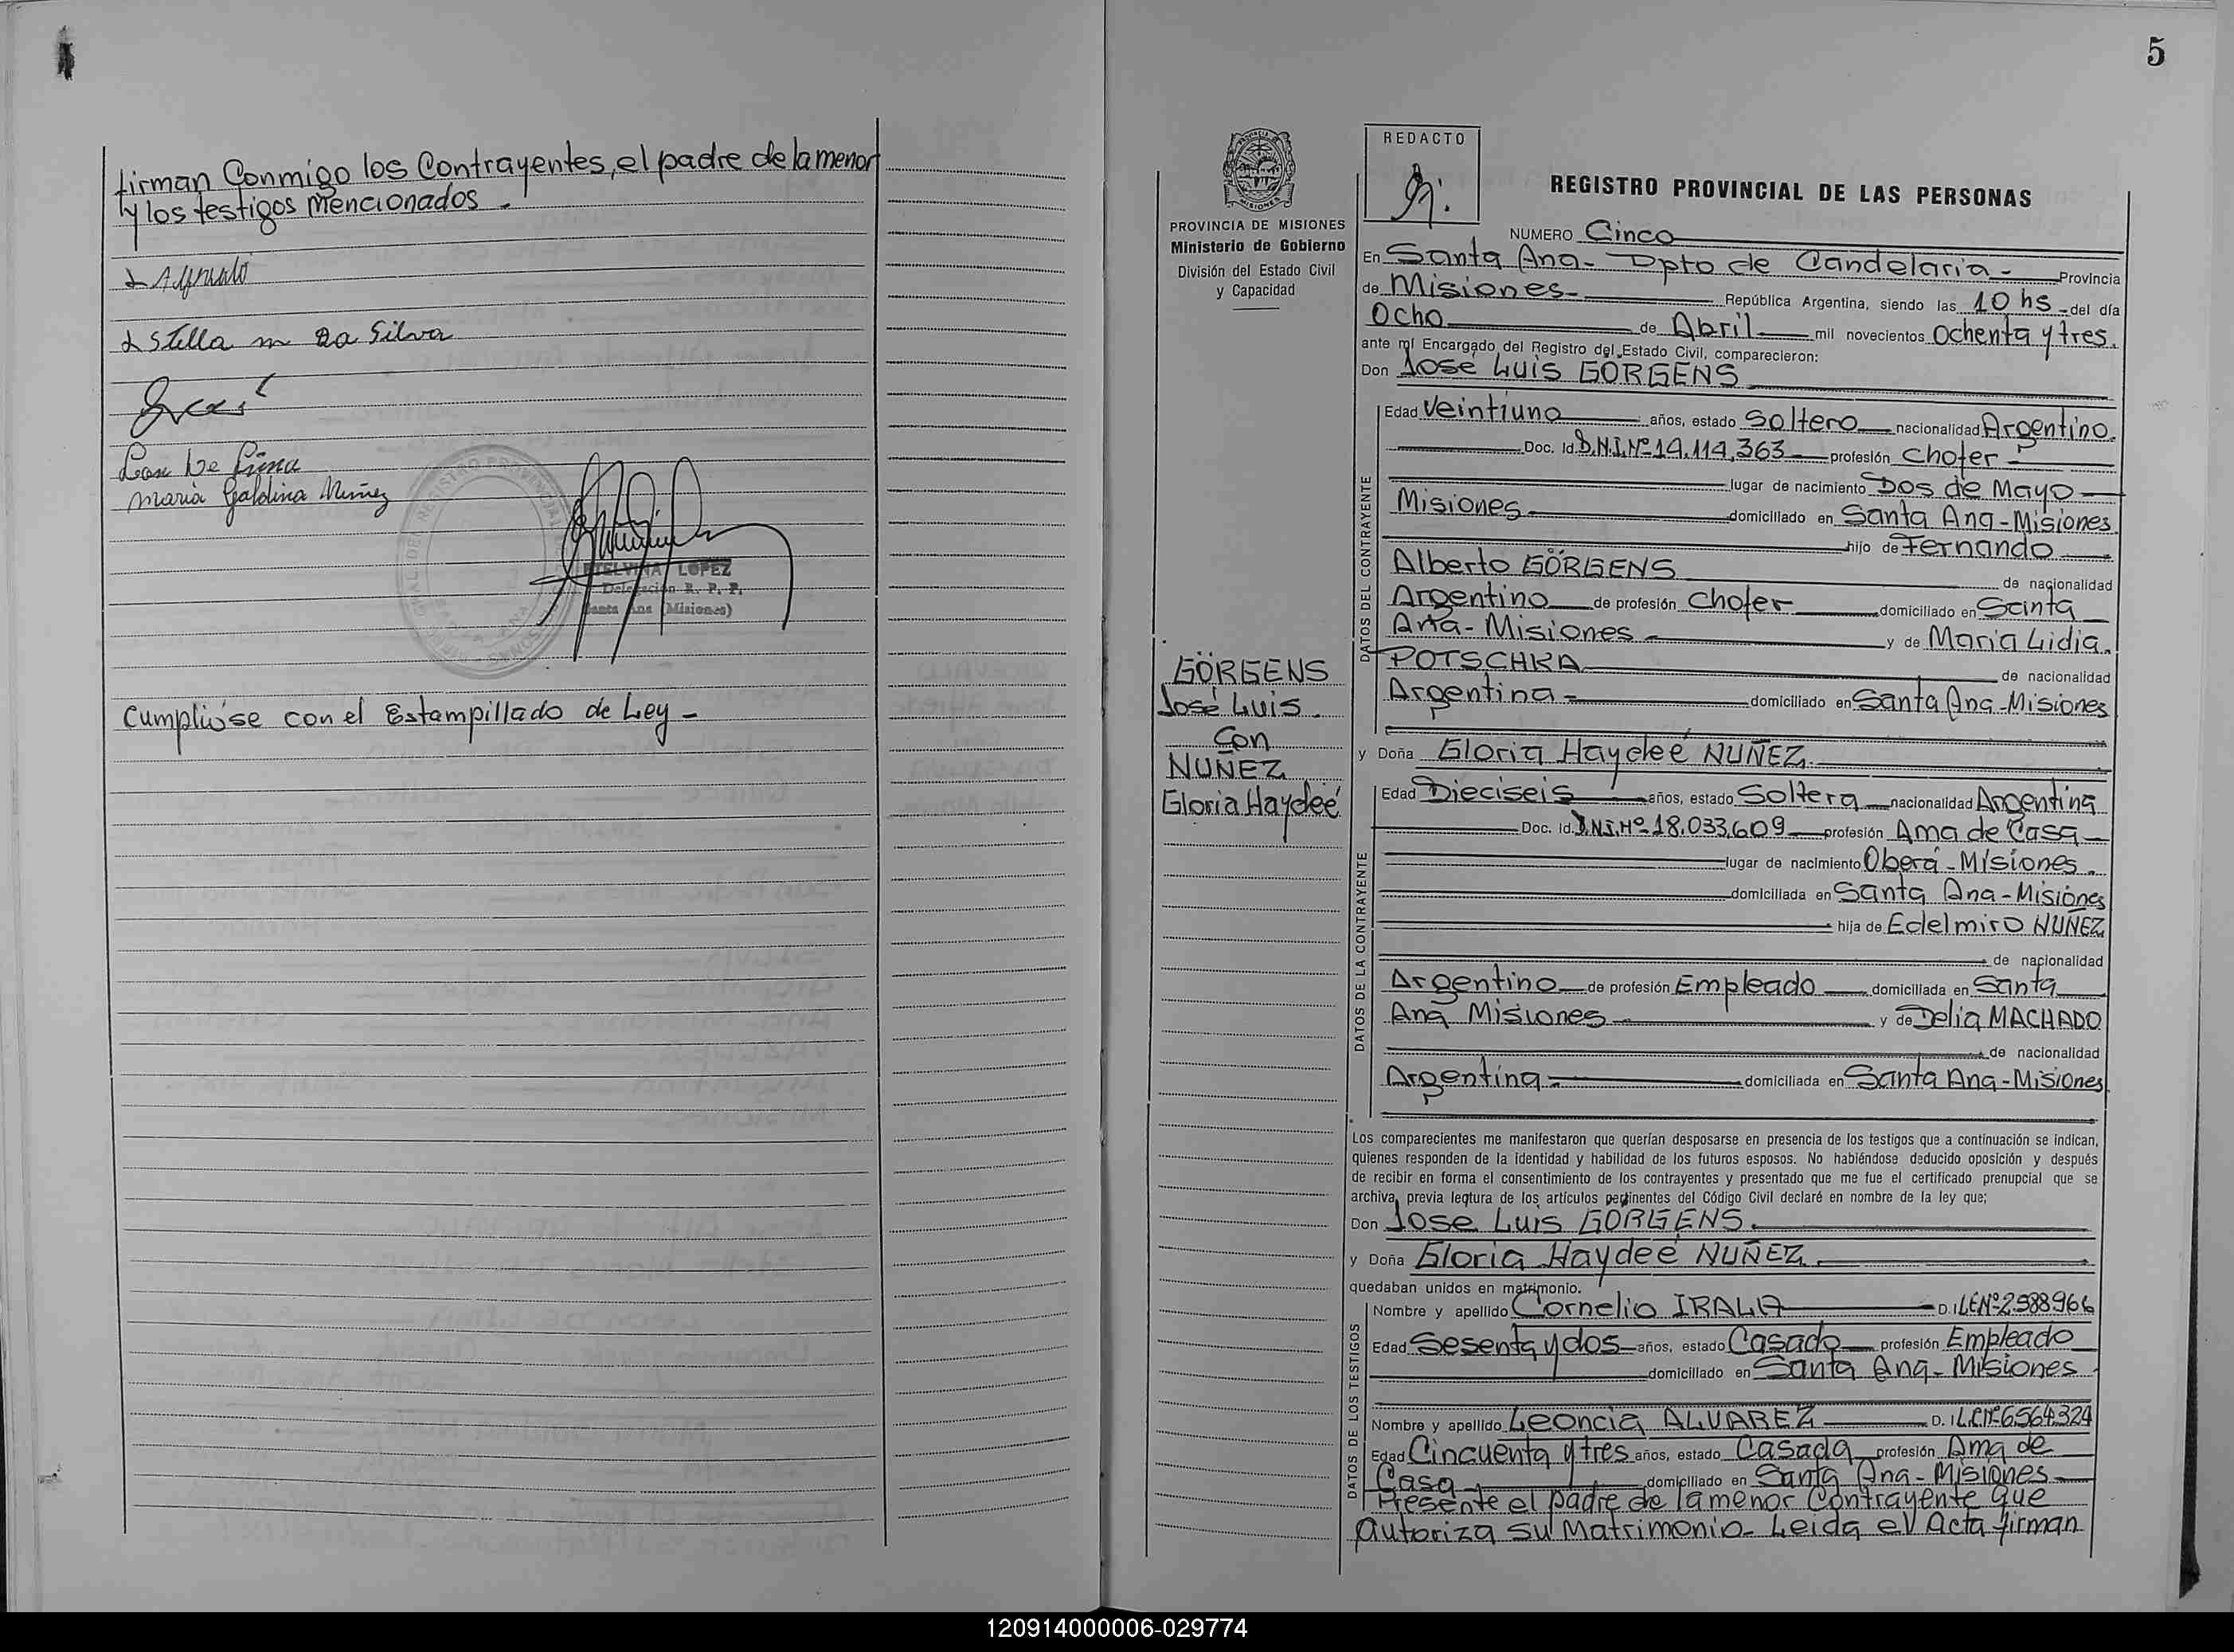 firman Conmigo los Contrayentes, el padre de la menor
y los testigos mencionados.
Stella m Da Silva
Leon De Lima
Maria Galdina Nuñez
ETELVINA LOPEZ
Delegación R. P. P.
Santa Ana (Misiones)
Cumplióse con el Estampillado de Ley -
5
PROVINCIA DE MISIONES
Ministerio de Gobierno
División del Estado Civil
y Capacidad
GÖRGENS
José Luis.
Con
NUÑEZ
Gloria Haydeé
REDACTO
REGISTRO PROVINCIAL DE LAS PERSONAS
NUMERO Cinco
En Santa Ana - Dpto de Candelaria - Provincia
de Misiones - República Argentina, siendo las 10 hs del día
Ocho de Abril mil novecientos Ochenta y tres.
ante mí Encargado del Registro del Estado Civil, comparecieron:
Don José Luis GÖRGENS
DATOS DEL CONTRAYENTE
Edad Veintiuno años, estado Soltero nacionalidad Argentino.
Doc. Id. D.N.I. Nº 14.114.363 profesión Chofer -
lugar de nacimiento Dos de Mayo
Misiones domiciliado en Santa Ana - Misiones
hijo de Fernando
Alberto GÖRGENS de nacionalidad
Argentino de profesión Chofer domiciliado en Santa
Ana - Misiones - y de María Lidia.
POTSCHKA de nacionalidad
Argentina - domiciliado en Santa Ana - Misiones
y Doña Gloria Haydeé NUÑEZ.
DATOS DE LA CONTRAYENTE
Edad Dieciseis años, estado Soltera nacionalidad Argentina
Doc. Id. D.N.I. Nº 18.033.609 profesión Ama de Casa
lugar de nacimiento Oberá - Misiones.
domiciliada en Santa Ana - Misiones
hija de Edelmiro NUÑEZ
de nacionalidad
Argentino de profesión Empleado domiciliada en Santa
Ana Misiones y de Delia MACHADO
de nacionalidad
Argentina - domiciliada en Santa Ana - Misiones
Los comparecientes me manifestaron que querían desposarse en presencia de los testigos que a continuación se indican,
quienes responden de la identidad y habilidad de los futuros esposos. No habiéndose deducido oposición y después
de recibir en forma el consentimiento de los contrayentes y presentado que me fue el certificado prenupcial que se
archiva, previa lectura de los artículos pertinentes del Código Civil declaré en nombre de la ley que;
Don Jose Luis GÖRGENS.
y Doña Gloria Haydeé NUÑEZ.
quedaban unidos en matrimonio.
DATOS DE LOS TESTIGOS
Nombre y apellido Cornelio IRALA D. I. L.E Nº 2.588.966
Edad Sesenta y dos años, estado Casado profesión Empleado
domiciliado en Santa Ana - Misiones
Nombre y apellido Leoncia ALVAREZ D. I. L.C Nº 6.564.324
Edad Cincuenta y tres años, estado Casada profesión Ama de
Casa domiciliado en Santa Ana - Misiones
Presente el padre de la menor Contrayente que
autoriza su Matrimonio - Leida el Acta firman
120914000006-029774